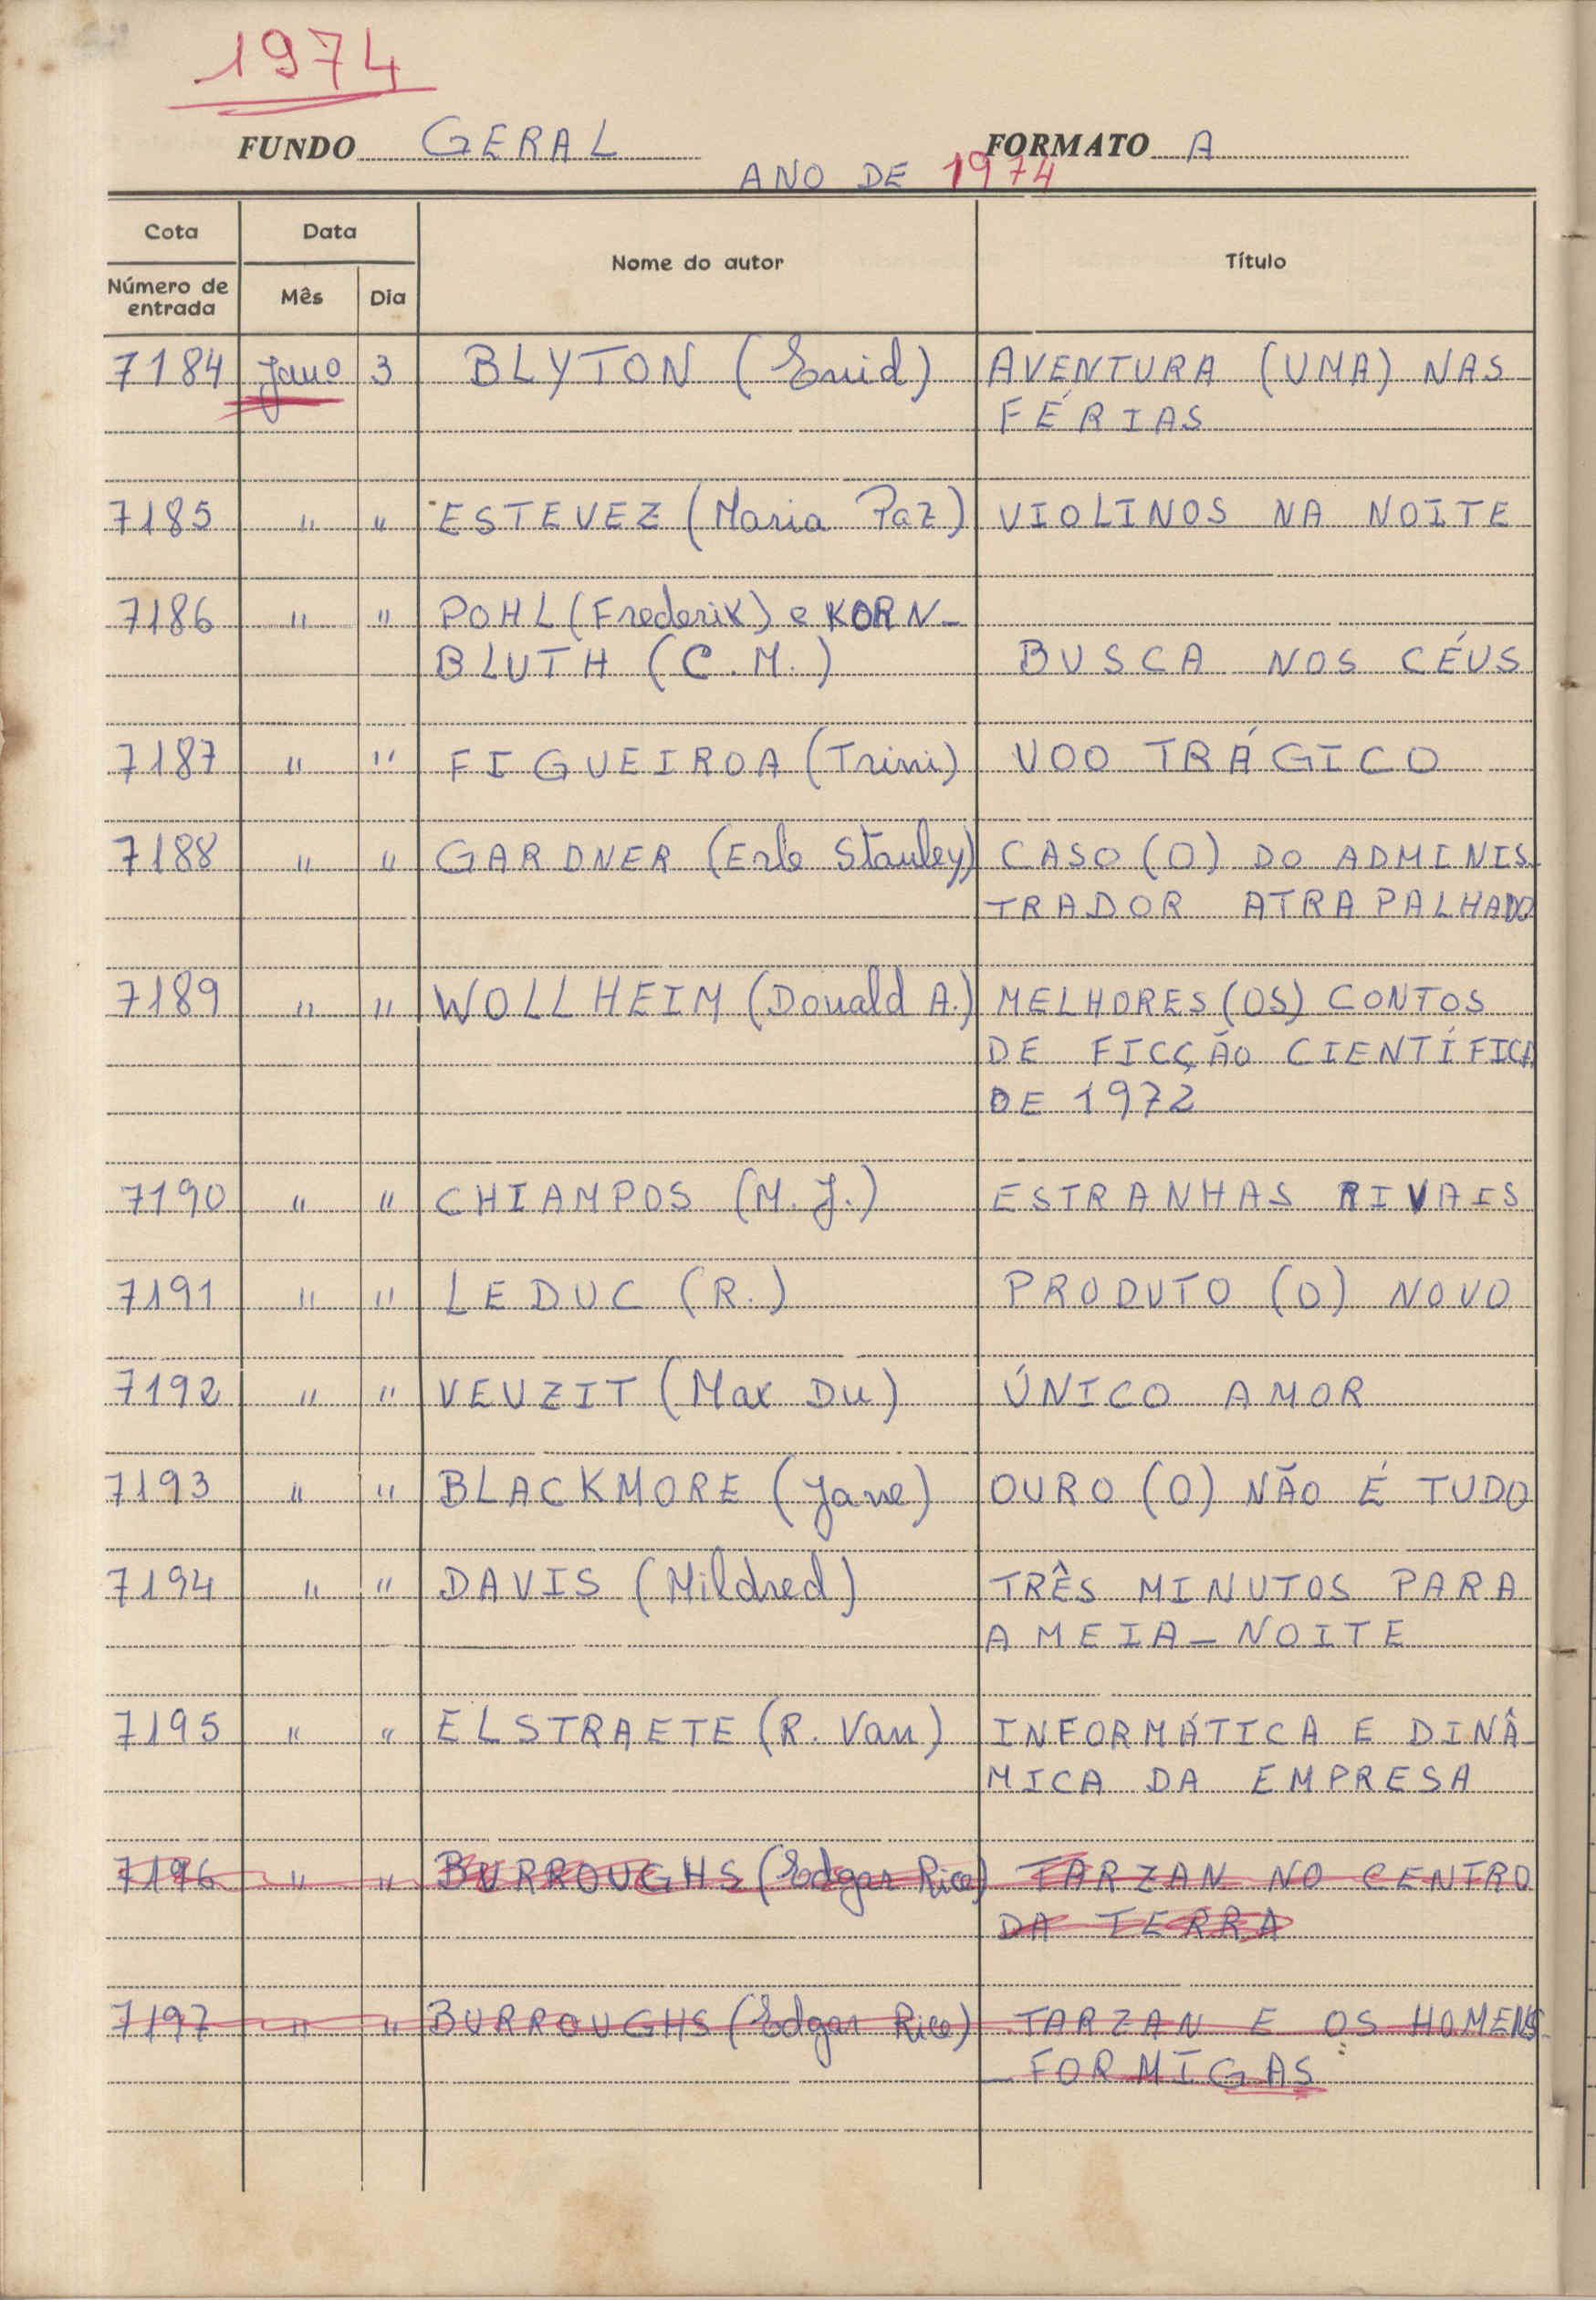 1974
FUNDO GERAL FORMATO A
ANO DE 1974
Cota Data
Nome do autor Título
Número de entrada Mês Dia
7184 Janº 3 BLYTON (Enid) AVENTURA (UMA) NAS
FÉRIAS
7185 " " ESTEVEZ (Maria Paz) VIOLINOS NA NOITE
7186 " " POHL (Frederik) e KORN-
BLUTH (C.M.) BUSCA NOS CÉUS
7187 " " FIGUEIROA (Trini) VOO TRÁGICO
7188 " " GARDNER (Erle Stanley) CASO (O) DO ADMINIS
TRADOR ATRAPALHADO
7189 " " WOLLHEIM (Donald A.) MELHORES (OS) CONTOS
DE FICÇÃO CIENTÍFICA
DE 1972
7190 " " CHIAMPOS (M. J.) ESTRANHAS RIVAIS
7191 " " LEDUC (R.) PRODUTO (O) NOVO
7192 " " VEUZIT (Max Du) ÚNICO AMOR
7193 " " BLACKMORE (Jane) OURO (O) NÃO É TUDO
7194 " " DAVIS (Mildred) TRÊS MINUTOS PARA
A MEIA-NOITE
7195 " " ELSTRAETE (R. Van) INFORMÁTICA E DINÂ-
MICA DA EMPRESA
7196 " " BURROUGHS (Edgar Rice) TARZAN NO CENTRO
DA TERRA
7197 " " BURROUGHS (Edgar Rice) TARZAN E OS HOMENS-
-FORMIGAS